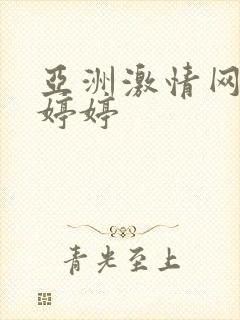 亞洲激情网
婷婷
青光至上